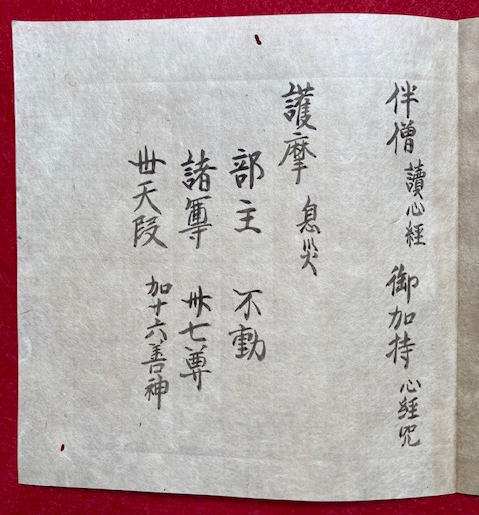 伴僧 讀心經 御加持 心經咒
護摩 息災
部主 不動
諸尊 卅七尊
世天段 加十六善神